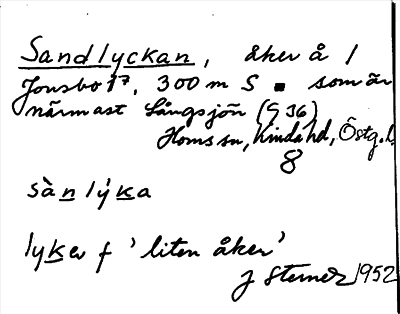 Sandlyckan, åker å 1
Jonsbo 1⁷, 300 m S ▪ som är
närmast Långsjön (G 36)
Horns sn, Kinda hd, Östg. l.
8
sànlýka
lyker f 'liten åker'
J Sterner 1952